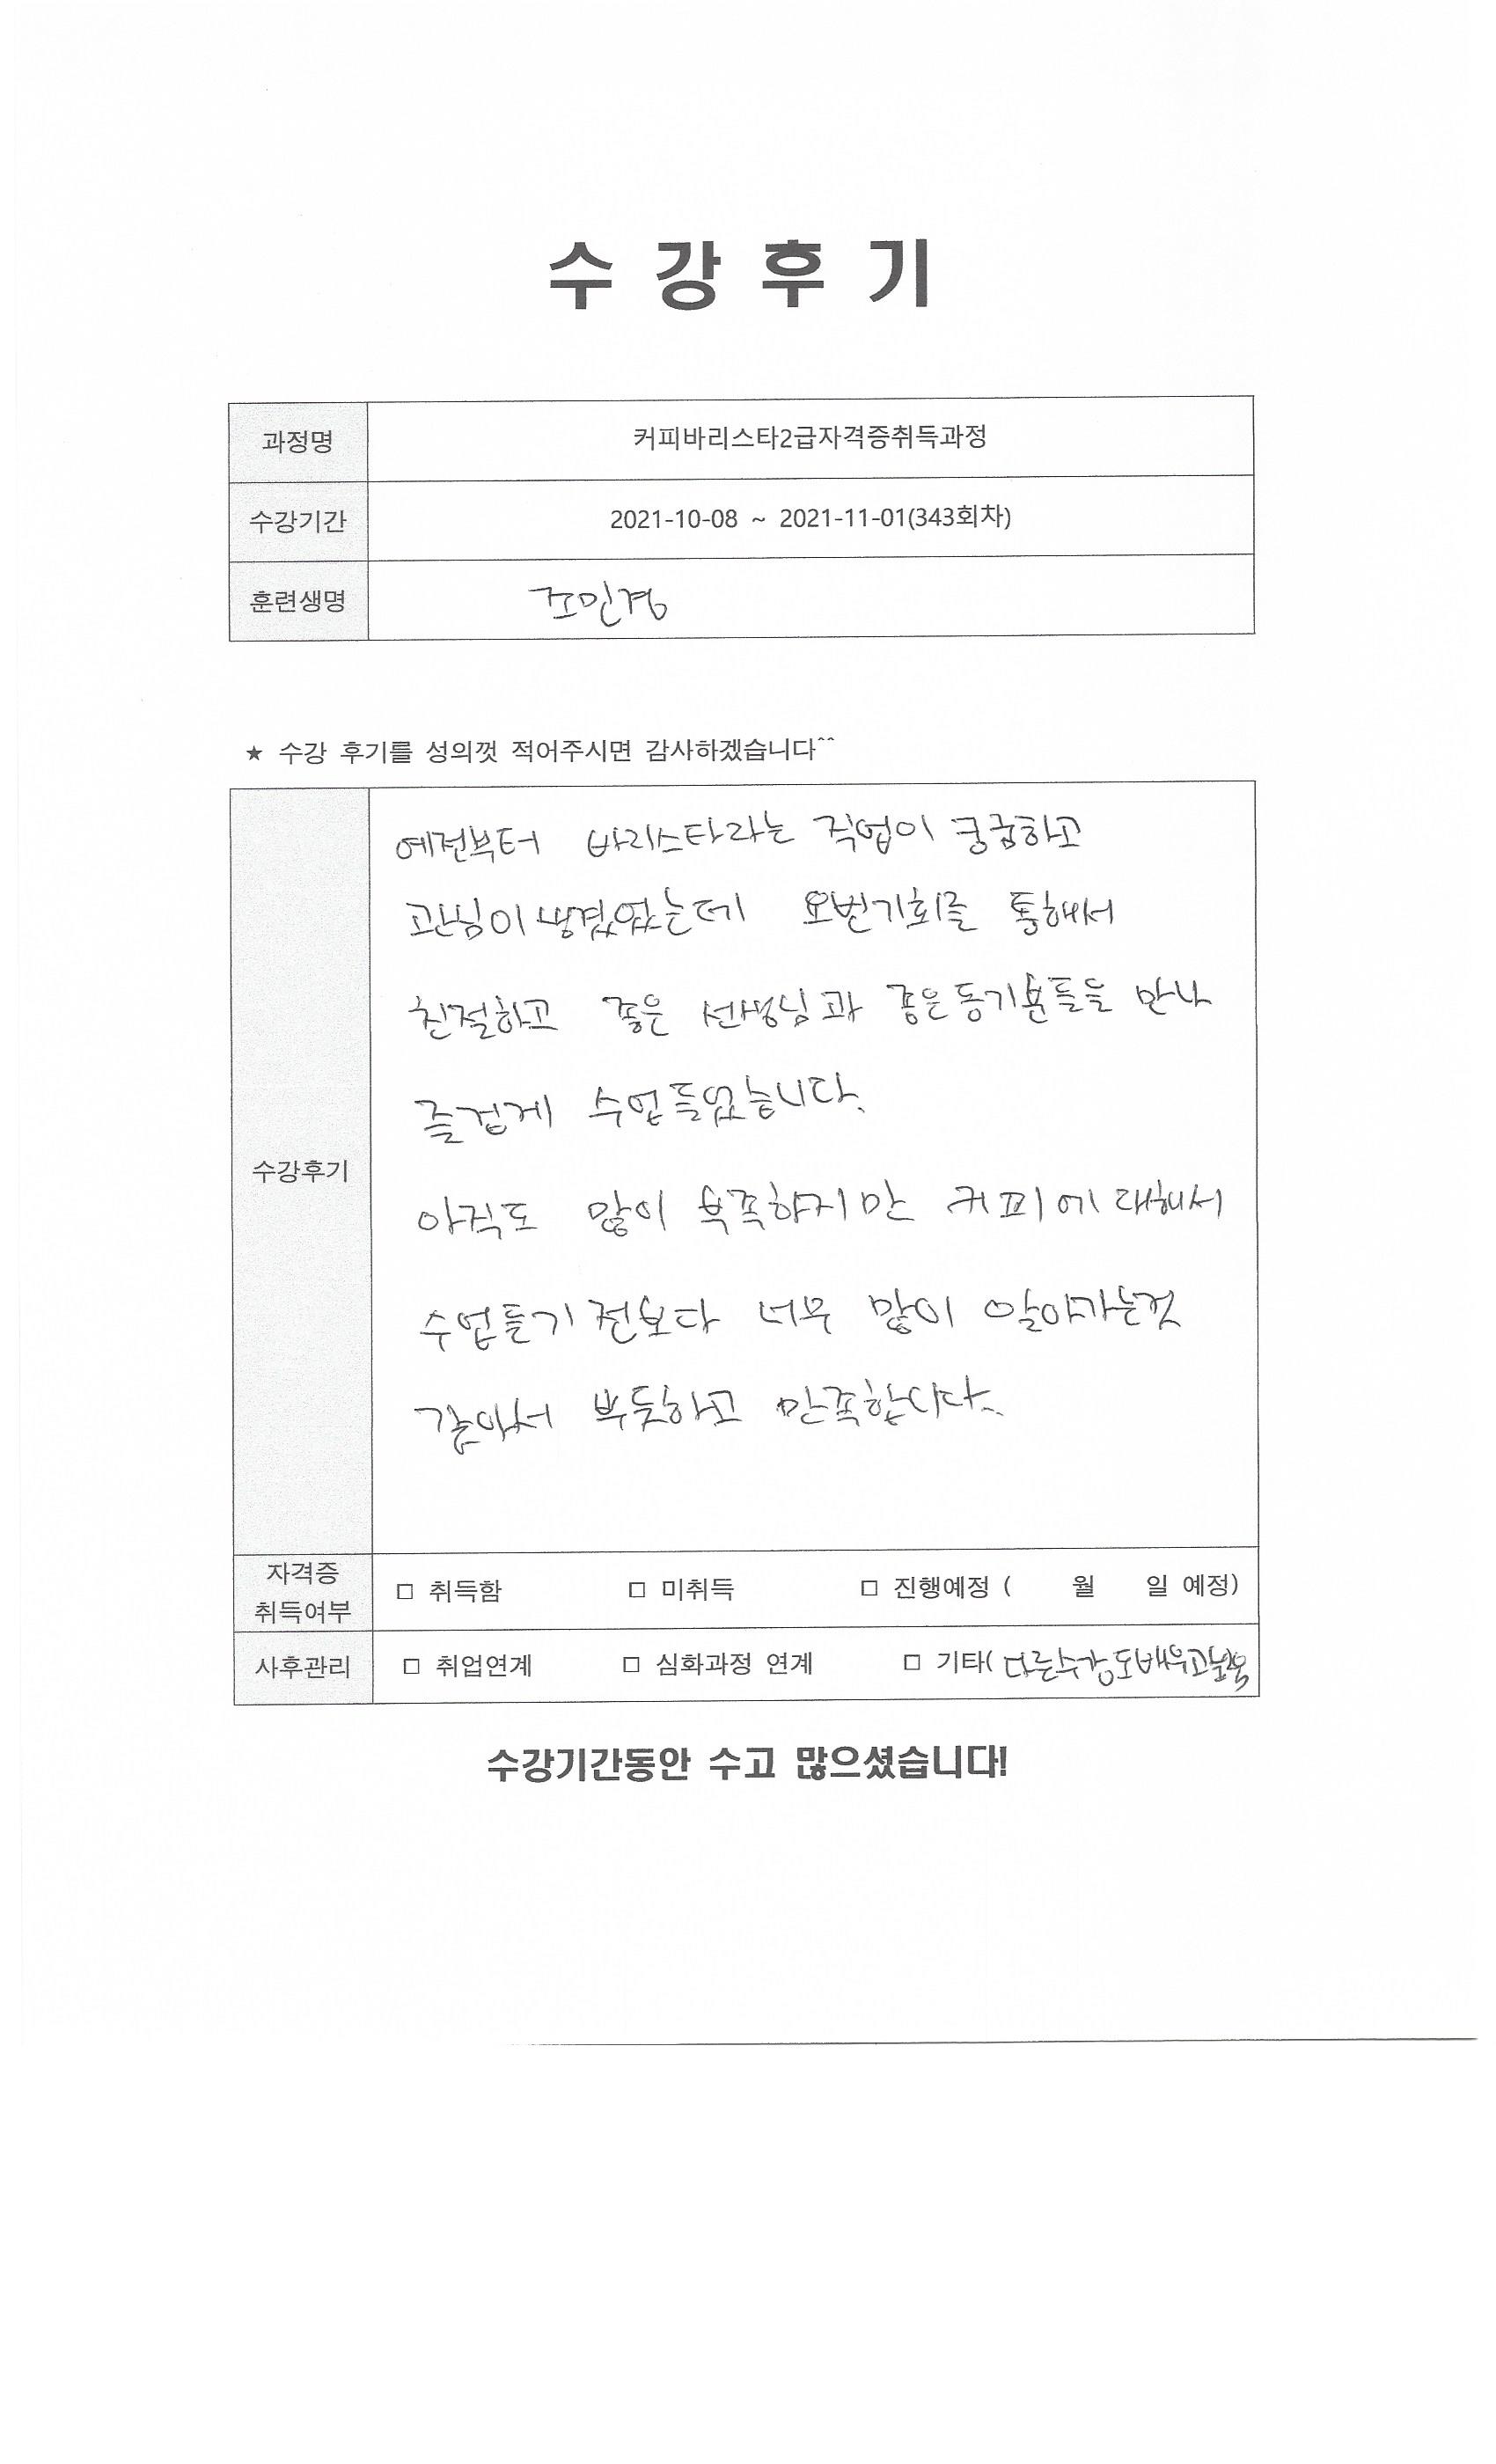 수 강 후 기
과정명 커피바리스타2급자격증취득과정
수강기간 2021-10-08 ~ 2021-11-01(343회차)
훈련생명 조민경
★ 수강 후기를 성의껏 적어주시면 감사하겠습니다^^
예전부터 바리스타라는 직업이 궁금하고
관심이 생겼었는데 요번기회를 통해서
친절하고 좋은 선생님과 좋은동기분들을 만나
즐겁게 수업들었습니다.
수강후기
아직도 많이 부족하지만 커피에 대해서
수업듣기 전보다 너무 많이 알아가는것
같아서 뿌듯하고 만족합니다.
자격증
취득여부
□ 취득함 □ 미취득 □ 진행예정 ( 월 일 예정)
사후관리 □ 취업연계 □ 심화과정 연계 □ 기타( 다른수강도배우고
수강기간동안 수고 많으셨습니다!